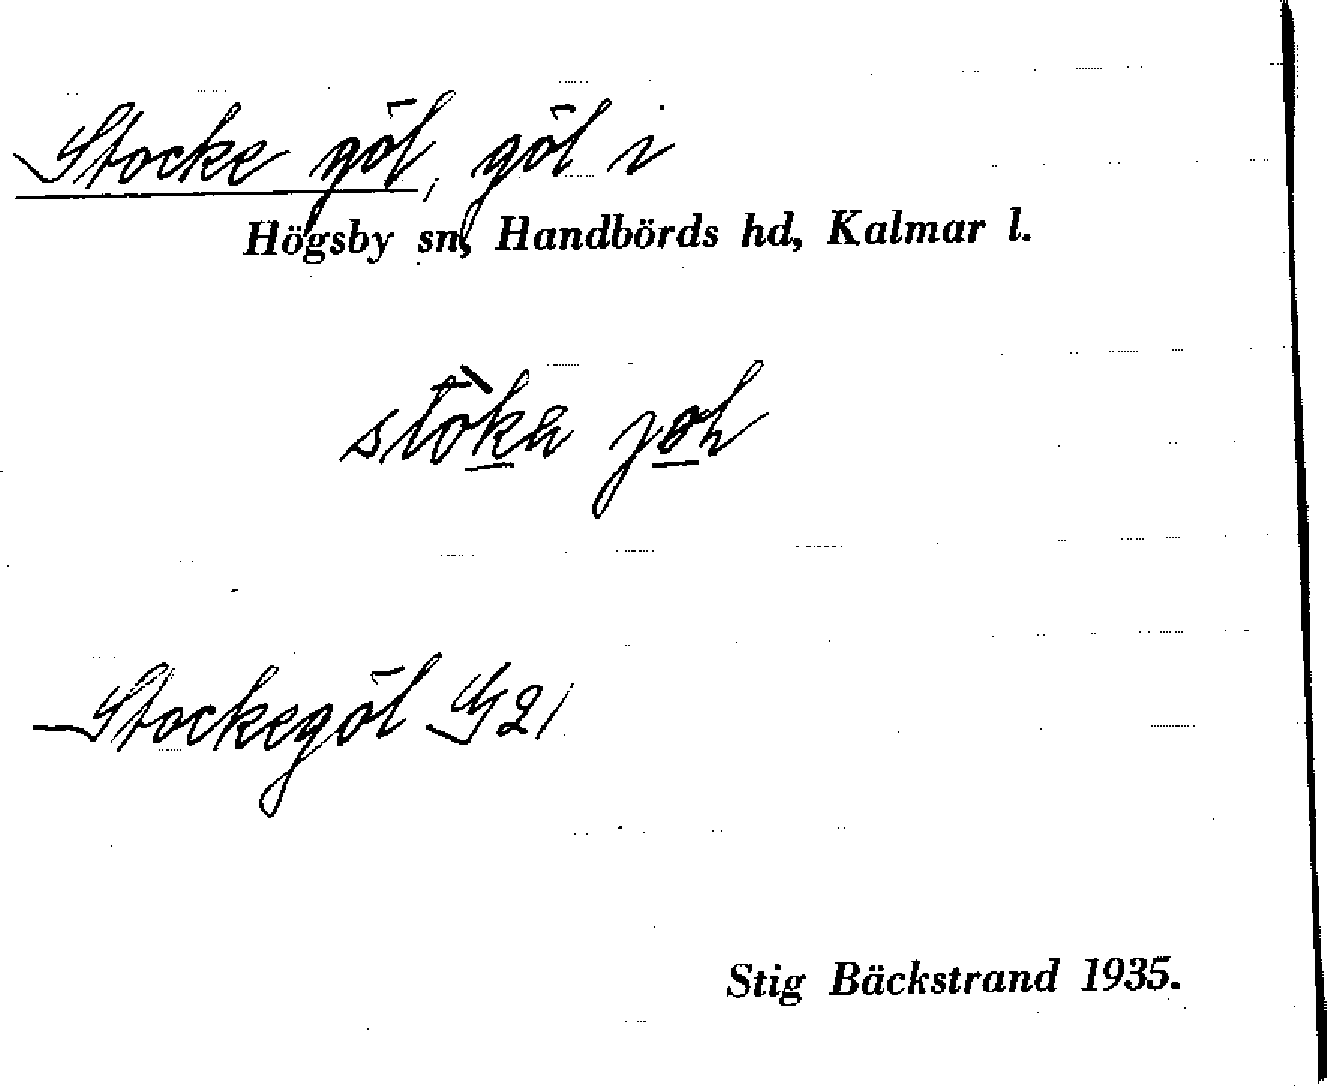 Stocke göl, göl i
Högsby sn, Handbörds hd, Kalmar l.
Stockegöl G21
Stig Bäckstrand 1935.